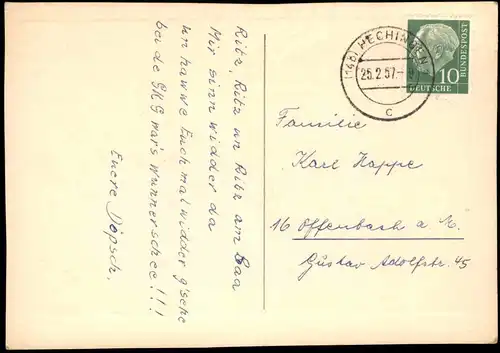 Ritz, Ritz un Ritz am Baa
Mir sinn widder da
un hawwe Euch mal widder g'sehe
bei de GKG war's wunnerschee!!!
Euere Döpsch.
(14b) HECHINGEN
25.2.57.
c
DEUTSCHE
BUNDESPOST
10
Familie
Karl Happe
16 Offenbach a. M.
Gustav Adolfstr. 45